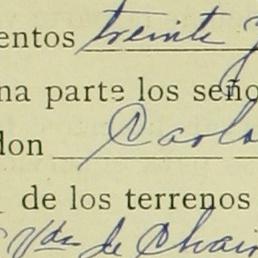 entos treinte y
na parte los seño
don Carlo
de los terrenos
Vda de Chai